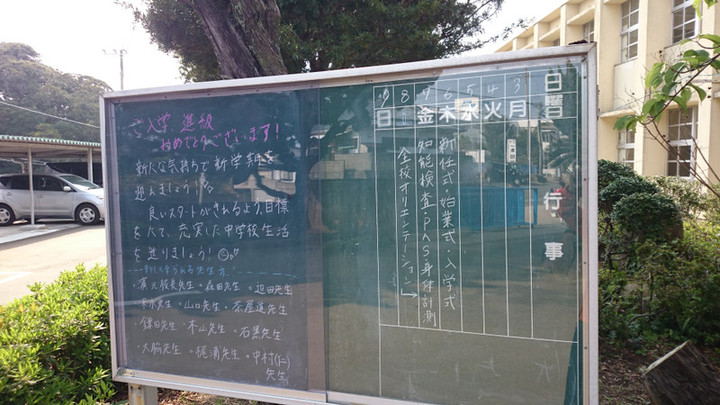 入学 進級
おめでとうございます!
新たな気持ちで新学期を
迎えましょう!
良いスタートがきれるよう、目標
をたて、充実した中学校生活
を送りましょう!
新しく来られる先生方
・森田先生・迫田先生
・山口先生・茶屋道先生
・鎌田先生・本山先生・石黒先生
・大脇先生・梶浦先生・中村(仁)
先生
日曜
行事
3 月
4 火
5 水
6 木 新任式・始業式・入学式
7 金 知能検査・PAS身体計測
全校オリエンテーション
8
9 日